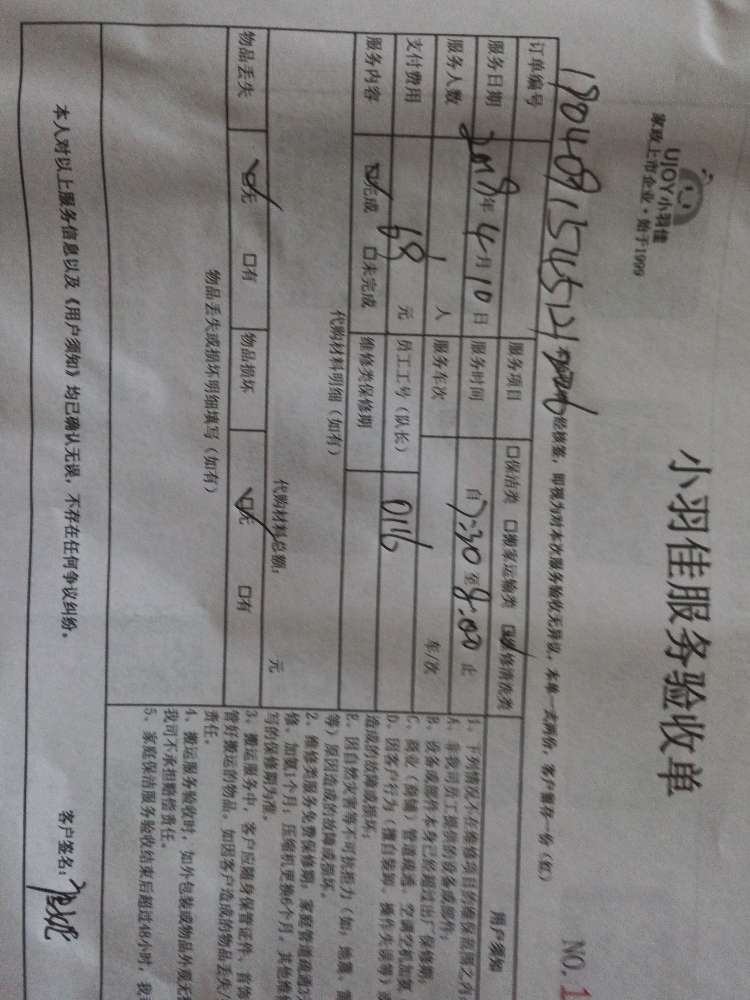 UJOY小羽佳
家政上市企业·始于1999
小羽佳服务验收单
NO.1
经核签，即视为对本次服务验收无异议，本单一式两份，客户留存一份（红）
订单编号 180409154521
服务项目 □保洁类 □搬家运输类 ☑维修清洗类
服务日期 2018年4月10日
服务时间 自7:30至8:00止
服务人数 1人
服务车次 车/次
支付费用 68元
员工工号（队长） 0116
服务内容 ☑完成 □未完成
维修类保修期
代购材料明细（如有）
代购材料总额： 元
物品丢失 ☑无 □有
物品损坏 ☑无 □有
物品丢失或损坏明细填写（如有）
用户须知
1、下列情况不在维修项目的维保范围之内
A、非我司员工提供的设备或部件；
B、设备或部件本身已经超过出厂保修期；
C、商业（商铺）管道疏通、空调空机加氨
D、因客户行为（擅自装卸、操作失误等）或
造成的故障或损坏；
E、因自然灾害等不可抗拒力（如：地震、雷
等）原因造成的故障或损坏。
2、维修类服务免费保修期：家庭管道疏通3
修、加氨1个月，压缩机更换6个月，其他维修
写的保修期为准。
3、搬运服务中，客户应随身保管证件、首饰
管好搬运的物品。如因客户造成的物品丢失/
责任。
4、搬运服务验收时，如外包装或物品外观无
我司不承担赔偿责任。
5、家庭保洁服务验收结束后超过48小时，我
本人对以上服务信息以及《用户须知》均已确认无误，不存在任何争议纠纷。
客户签名：